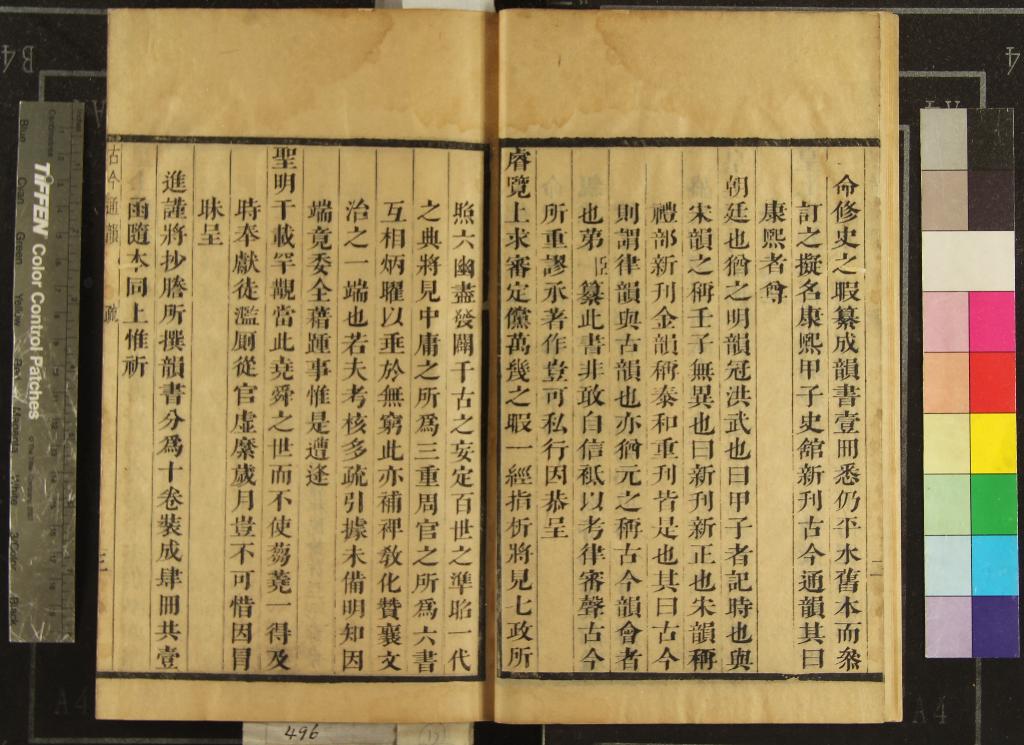 命修史之暇纂成韻書壹冊悉仍平水舊本而叅
訂之擬名康熙甲子史舘新刊古今通韻其曰
康熙者尊
朝廷也猶之明韻冠洪武也曰甲子者記時也與
宋韻之稱壬子無異也曰新刊新正也朱韻稱
禮部新刊金韻稱泰和重刊皆是也其曰古今
則謂律韻與古韻也亦猶元之稱古今韻會者
也第臣纂此書非敢自信祗以考律審聲古今
所重謬承著作豈可私行因恭呈
睿覽上求審定儻萬幾之暇一經指析將見七政所
照六幽盡發闢千古之妄定百世之準昭一代
之典將見中庸之所為三重周官之所為六書
互相炳曜以垂於無窮此亦補裨敎化贊襄文
治之一端也若夫考核多疏引據未備明知因
端竟委全藉踵事惟是遭逢
聖明千載罕覯當此堯舜之世而不使蒭蕘一得及
時奉獻徒濫厠從官虛縻歲月豈不可惜因冒
昧呈
進謹將抄謄所撰韻書分為十卷裝成肆冊共壹
函隨本同上惟祈
古今通韻 疏 三
二
TIFFEN Color Control Patches
Blue
Cyan
Green
Yellow
Red
Magenta
White
3/Color
Black
Centimetres
B4
A4
A4
A4
4
496